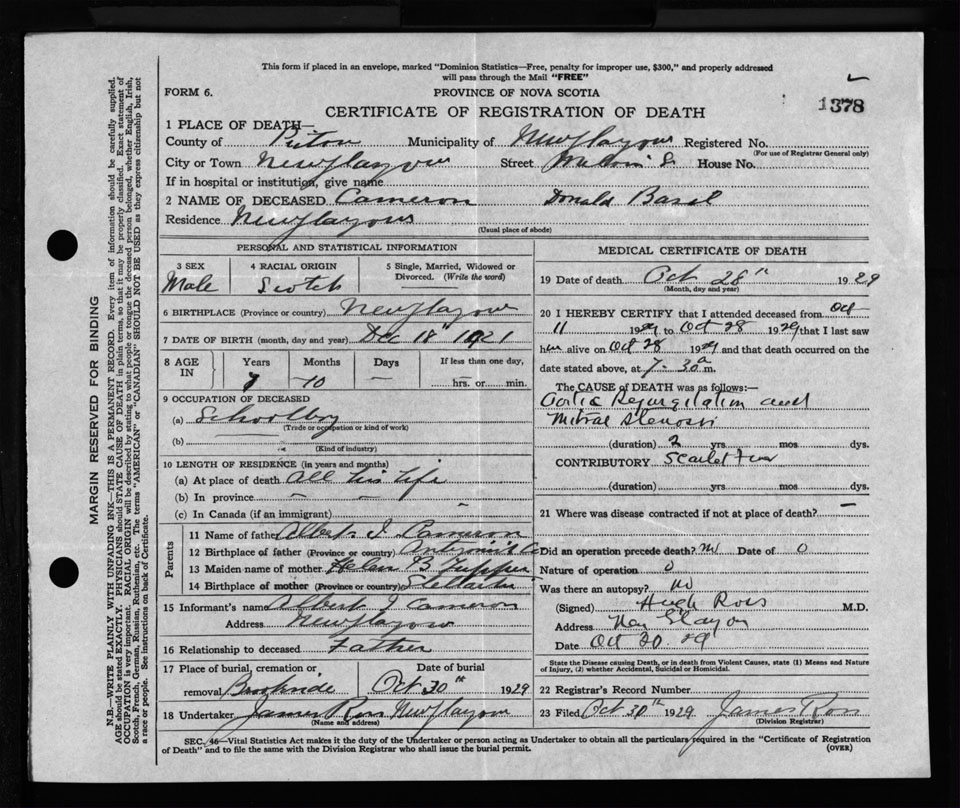 This form if placed in an envelope, marked "Dominion Statistics—Free, penalty for improper use, $300," and properly addressed
will pass through the Mail "FREE"
FORM 6. PROVINCE OF NOVA SCOTIA
1378
CERTIFICATE OF REGISTRATION OF DEATH
1 PLACE OF DEATH—
County of Pictou Municipality of New Glasgow Registered No.
(For use of Registrar General only)
City or Town New Glasgow Street House No.
If in hospital or institution, give name
2 NAME OF DECEASED Cameron Donald Basil
Residence New Glasgow
(Usual place of abode)
PERSONAL AND STATISTICAL INFORMATION
3 SEX 4 RACIAL ORIGIN 5 Single, Married, Widowed or
Divorced. (Write the word)
Male Scotch
6 BIRTHPLACE (Province or country) New Glasgow
7 DATE OF BIRTH (month, day and year) Dec 18th 1921
8 AGE IN Years Months Days If less than one day,
7 10 — hrs. or min.
9 OCCUPATION OF DECEASED
(a) Schoolboy
(Trade or occupation or kind of work)
(b)
(Kind of industry)
10 LENGTH OF RESIDENCE (in years and months)
(a) At place of death All his life
(b) In province — —
(c) In Canada (if an immigrant) —
Parents
11 Name of father Albert J Cameron
12 Birthplace of father (Province or country)
13 Maiden name of mother Helen B
14 Birthplace of mother (Province or country) Stellarton
15 Informant's name Albert J Cameron
Address New Glasgow
16 Relationship to deceased Father
17 Place of burial, cremation or Date of burial
removal Brookside Oct 30th 1929
18 Undertaker James Ross New Glasgow
(Name and address)
MEDICAL CERTIFICATE OF DEATH
19 Date of death Oct 28th 1929
(Month, day and year)
20 I HEREBY CERTIFY that I attended deceased from Oct
11 1929 to Oct 28 1929 that I last saw
him alive on Oct 28 1929 and that death occurred on the
date stated above, at 7-30 a m.
The CAUSE OF DEATH was as follows:
Aortic Regurgitation and
Mitral Stenosis
(duration) 2 yrs mos dys.
CONTRIBUTORY Scarlet Fever
(duration) yrs. mos. dys.
21 Where was disease contracted if not at place of death? —
Did an operation precede death? no Date of 0
Nature of operation 0
Was there an autopsy? no
(Signed) Hugh Ross M.D.
Address New Glasgow
Date Oct 30. 29
State the Disease causing Death, or in death from Violent Causes, state (1) Means and Nature
of Injury, (2) whether Accidental, Suicidal or Homicidal.
22 Registrar's Record Number
23 Filed Oct 30th 1929 James Ross
(Division Registrar)
SEC. 46—Vital Statistics Act makes it the duty of the Undertaker or person acting as Undertaker to obtain all the particulars required in the "Certificate of Registration
of Death" and to file the same with the Division Registrar who shall issue the burial permit. (OVER)
MARGIN RESERVED FOR BINDING
N.B.—WRITE PLAINLY WITH UNFADING INK—THIS IS A PERMANENT RECORD. Every item of information should be carefully supplied.
AGE should be stated EXACTLY. PHYSICIANS should STATE CAUSE OF DEATH in plain terms, so that it may be properly classified. Exact statement of
OCCUPATION is very important. RACIAL ORIGIN will be described by stating to what people or tongue the deceased person belonged, whether English, Irish,
Scotch, French, German, Russian, Ruthenian, etc. The terms "AMERICAN" or "CANADIAN" SHOULD NOT BE USED as they express citizenship but not
a race or people. See instructions on back of Certificate.